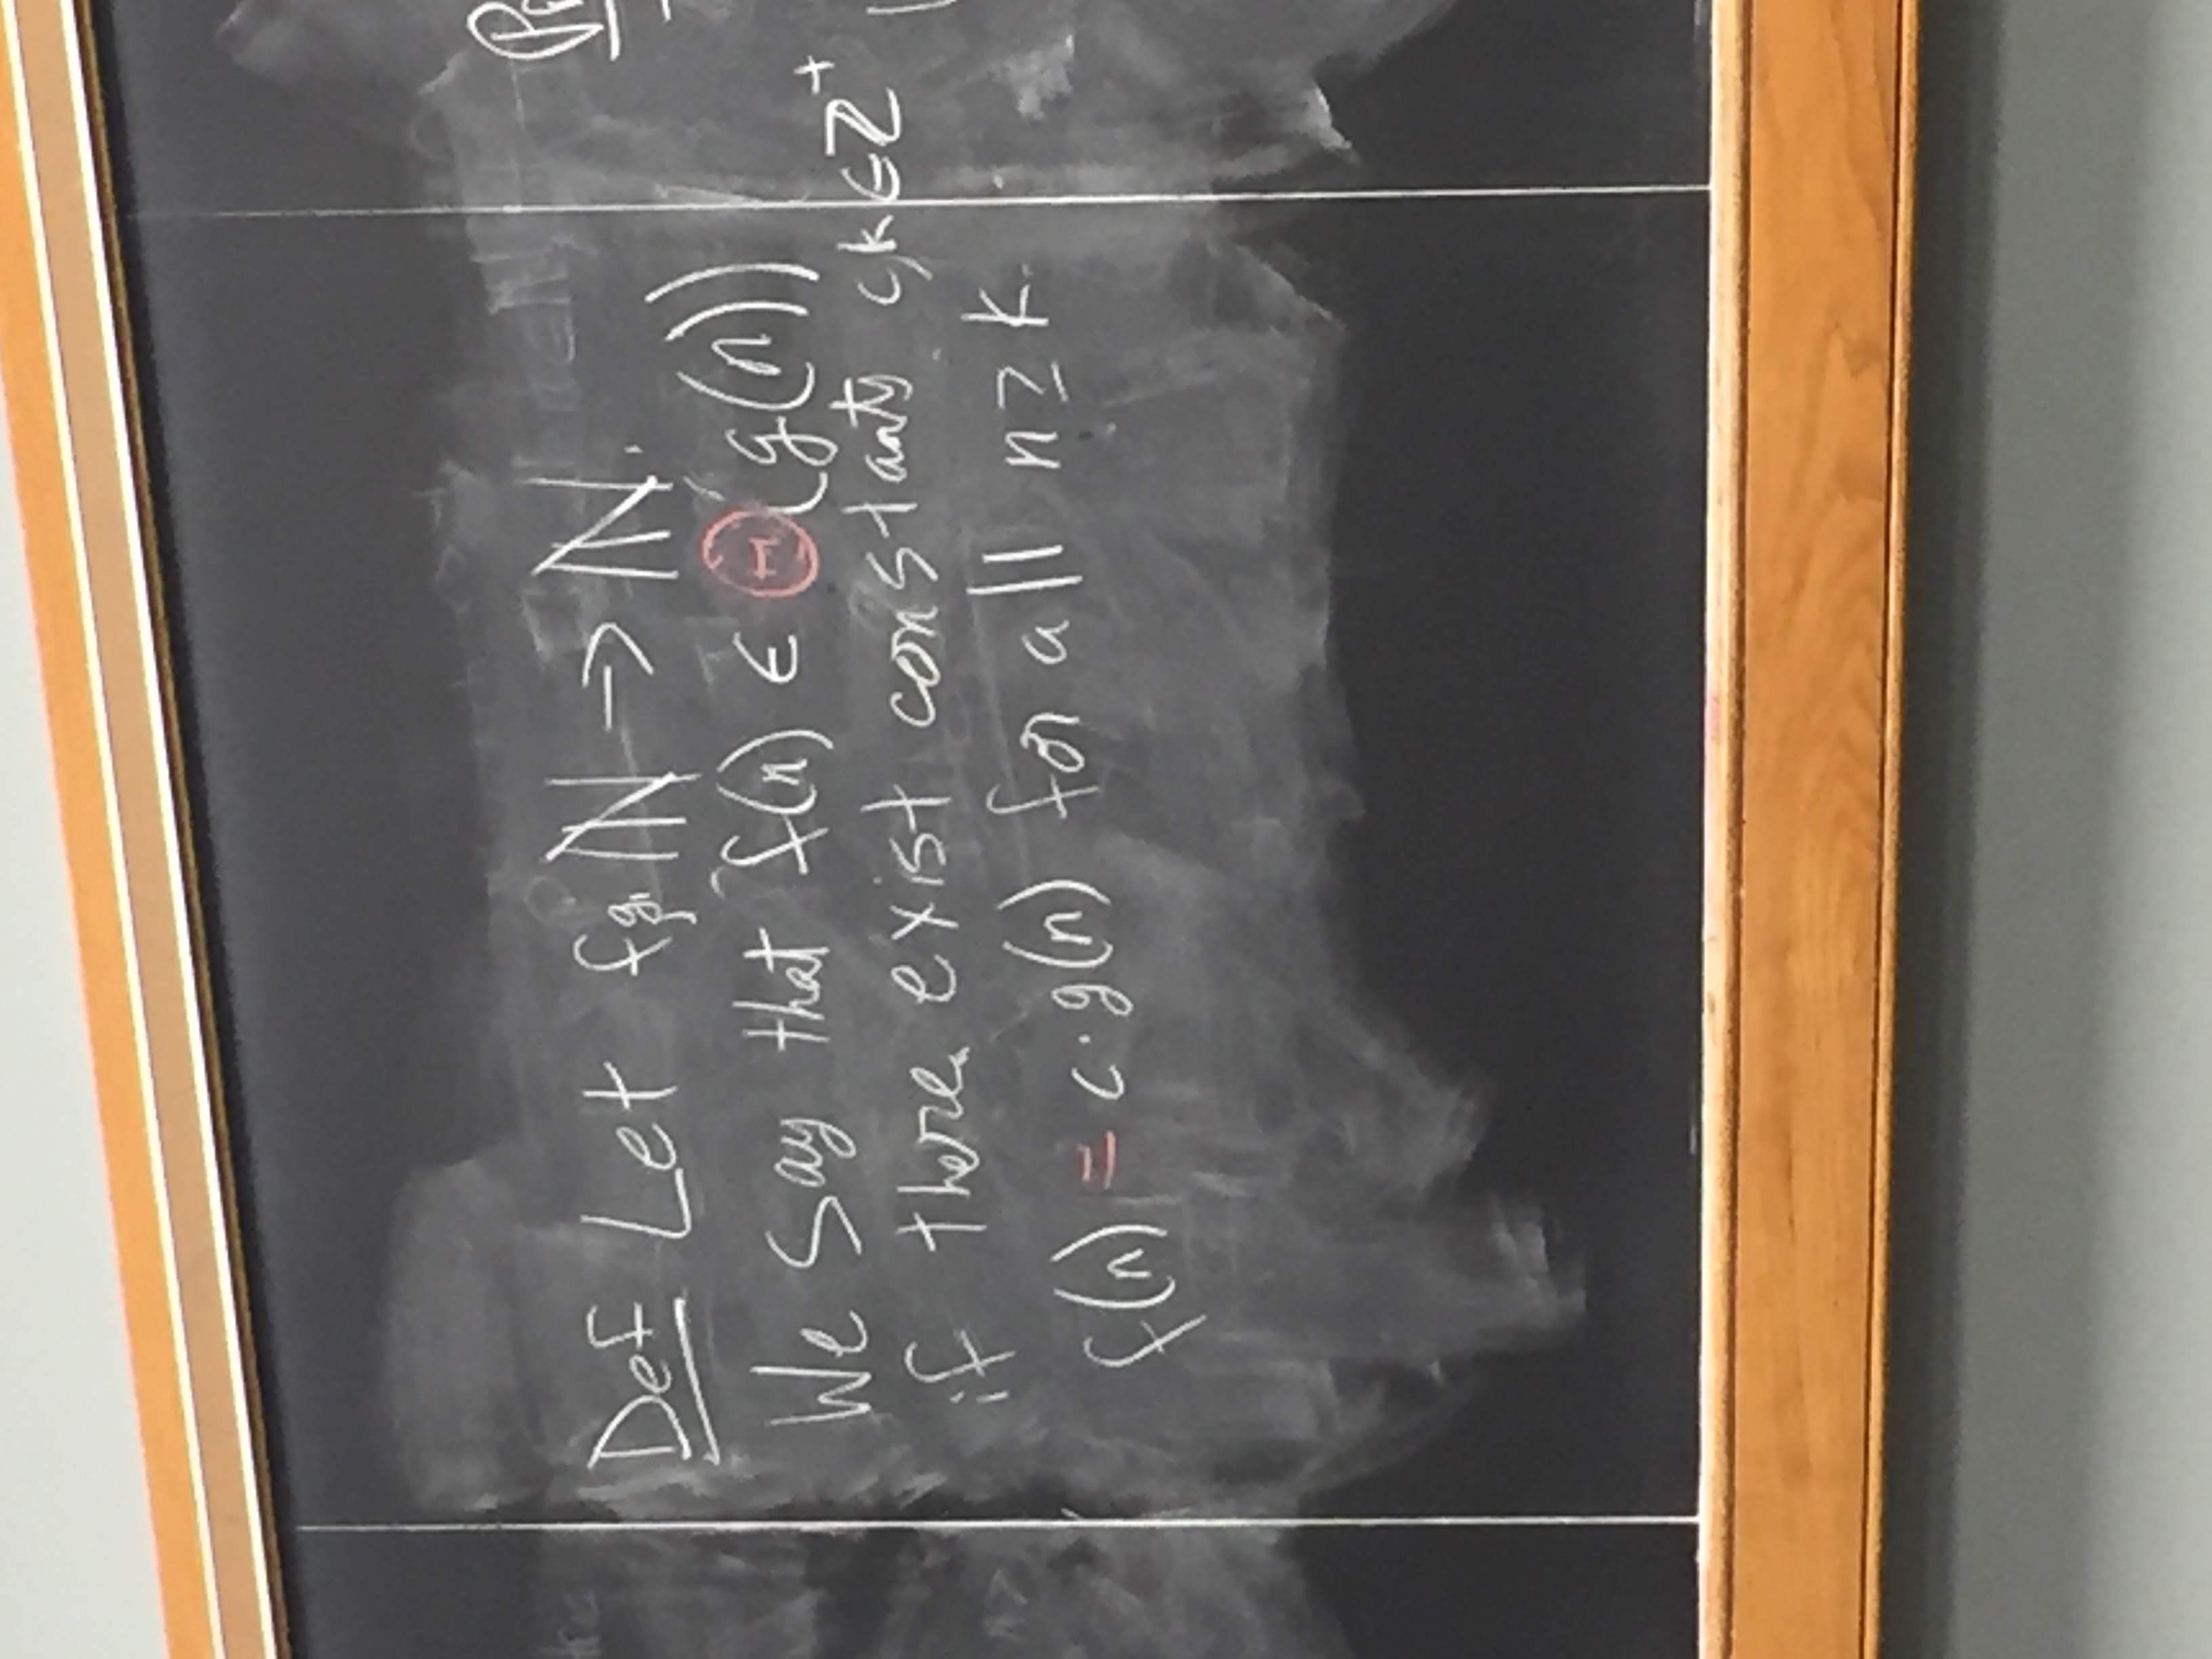 Def Let f,g: ℕ → ℕ.
We say that f(n) ∈ Θ(g(n))
if there exist constants c,k ∈ ℤ⁺
f(n) = c·g(n) for all n ≥ k.